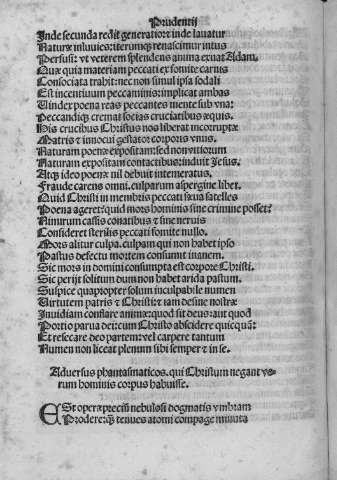 Prudentij
Inde secunda redit generatio: et inde lauatur
Naturæ inluuies: iterumq; renascimur intus
Persusi: vt veterem splendens anima exuat Adam.
Quæ quia materiam peccati ex fomite carnis
Consociata trahit: nec non simul ipsa sodali
Est incentiuum peccaminis: implicat ambas
Uindex poena reas peccantes mente sub vna:
Peccandiq; cremat socias cruciatibus æquis.
His crucibus Christus nos liberat incorruptæ
Matris et innocui gestator corporis vnus.
Naturam poenæ expositam: sed non vitiorum
Naturam expositam contactibus: induit Jesus.
Atq; ideo poenæ nil debuit intemeratus,
Fraude carens omni. culparum aspergine liber.
Quid Christi in membris peccati sæua satelles
Poena ageret: quid mors hominis sine crimine posset?
Nimirum cassis conatibus et sine neruis
Consideret sterilis peccati fomite nullo.
Mors alitur culpa. culpam qui non habet ipso
Pastus defectu mortem consumit inanem.
Sic mors in domini consumpta est corpore Christi.
Sic perijt solitum dum non habet arida pastum.
Suspice quapropter solum inculpabile numen
Uirtutem patris et Christi: et iam desine nostræ
Inuidiam conflare animæ: quod sit deus: aut quod
Portio parua dei: cum Christo abscidere quicquã:
Et resecare deo partem: vel carpere tantum
Numen non liceat plenum sibi semper et in se.
Aduersus phantasmaticos. qui Christum negant ve-
rum hominis corpus habuisse.
ESt operæprecium nebulosi dogmatis vmbram
Prodere: q̃ tenues atomi compage minuta